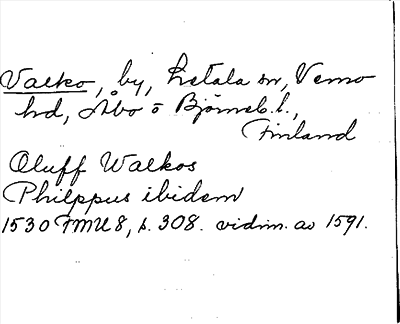 Valko, by, Letala sn, Vemo
hd, Åbo o Björneb. l.,
Finland
Oluff Walkos
Philppus ibidem
1530 FMU 8, s. 308. vidim. av 1591.